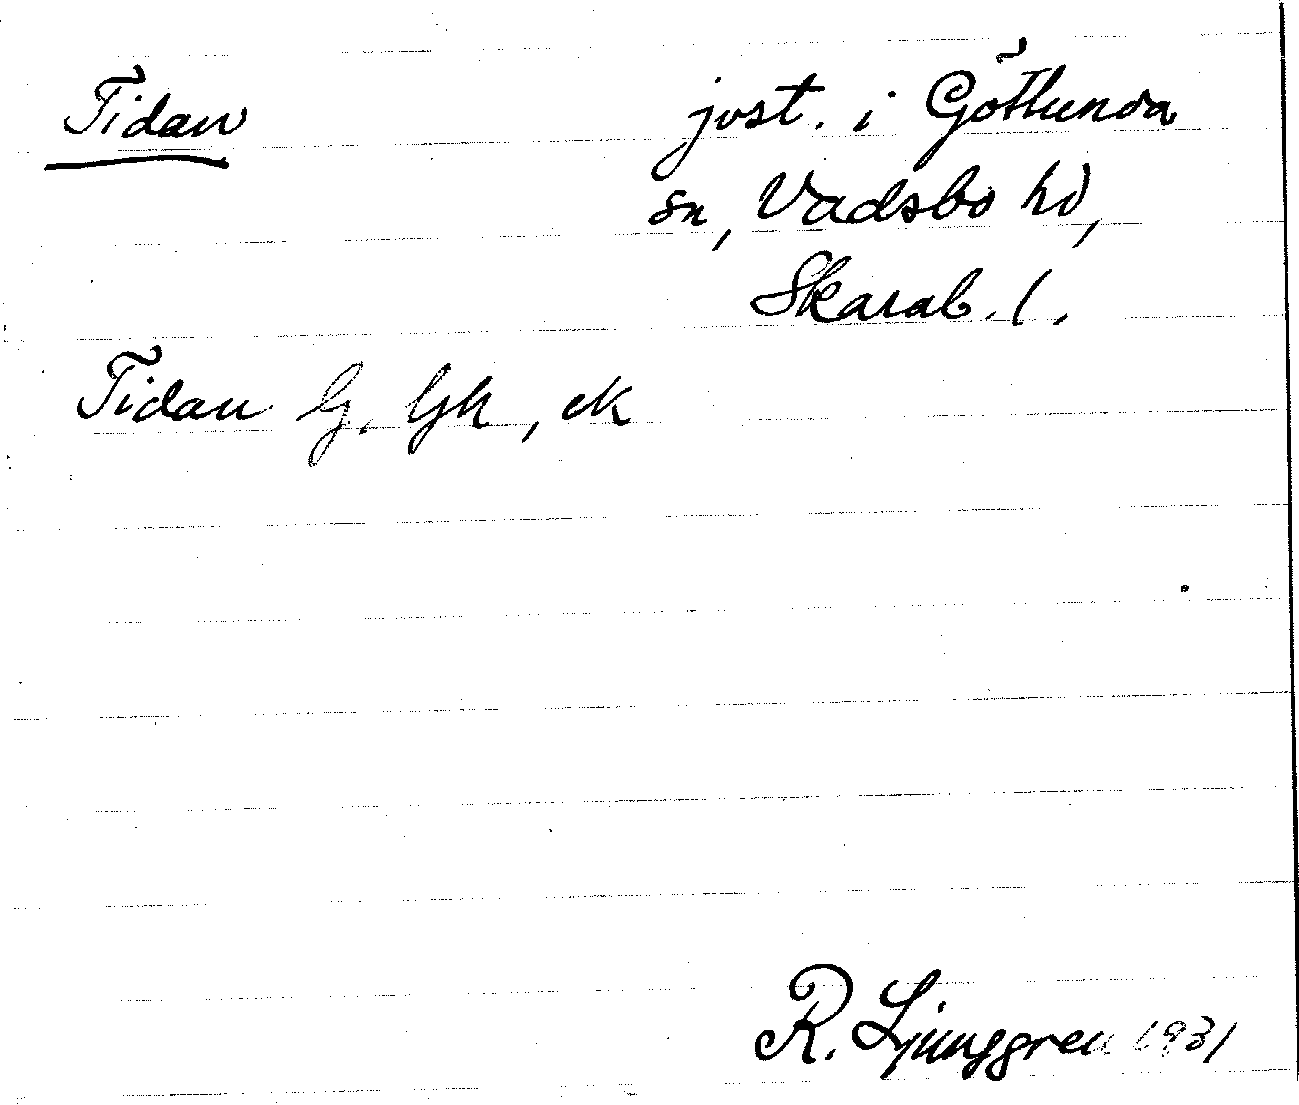 Tidan jvst. i Götlunda
sn, Vadsbo hd,
Skarab. l.
Tidan G, Gk, ek
R. Ljunggren 1931